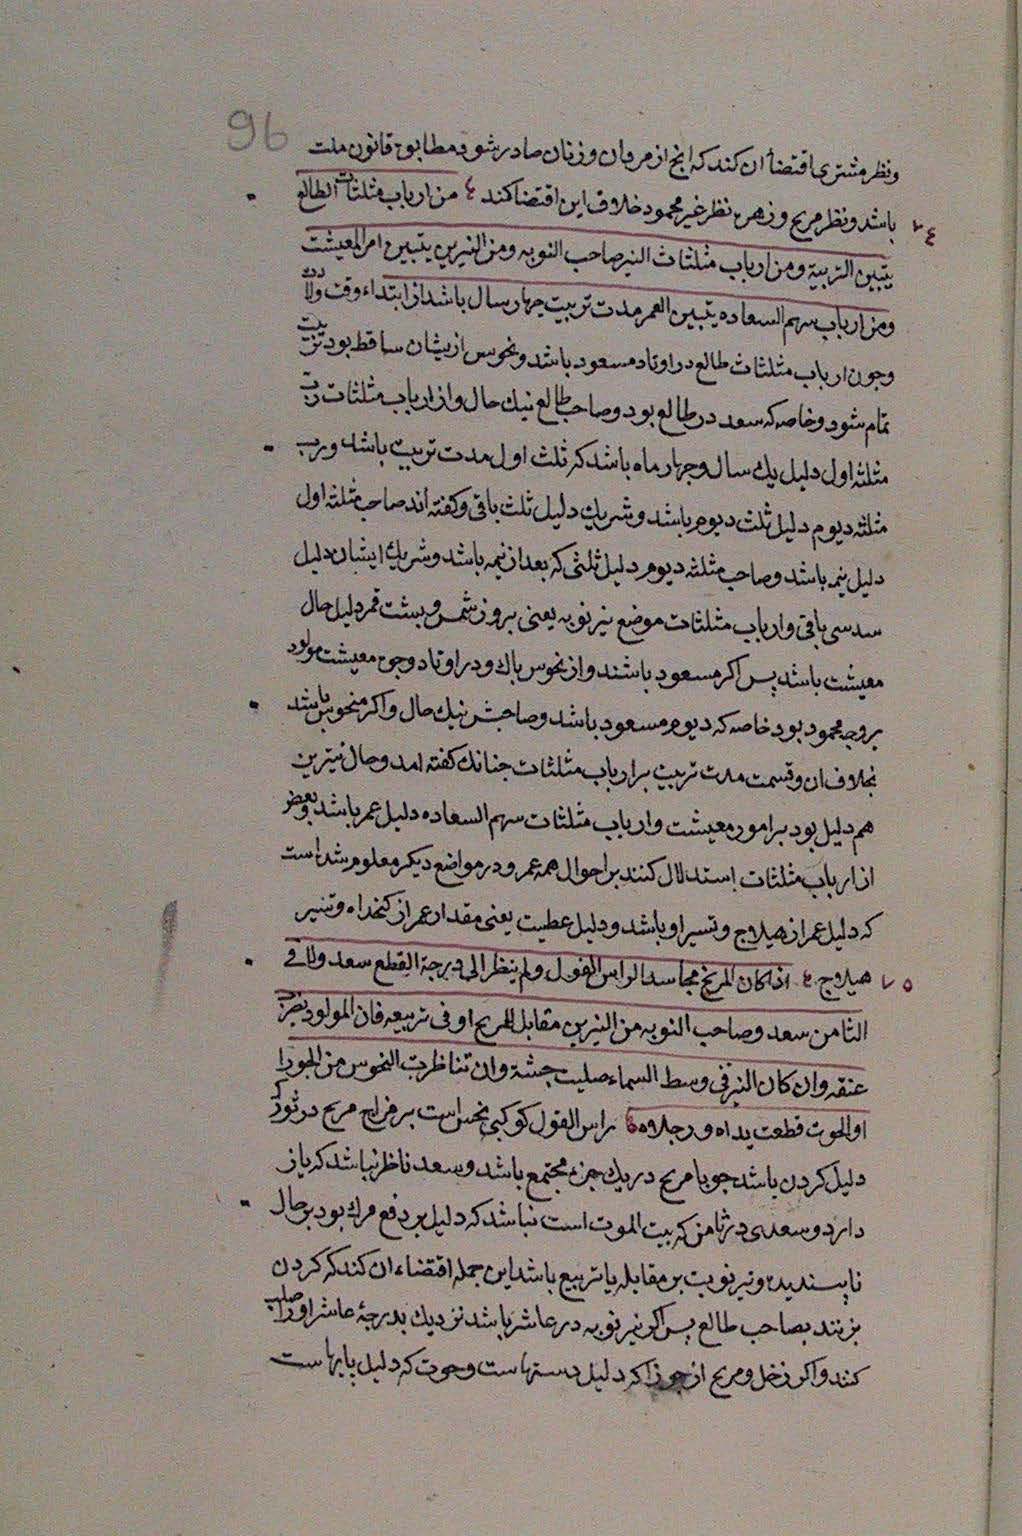 96
ونظر مشتری اقتضأ ان کند که انچ از مردان و زنان صادر شود مطابق قانون ملت
باشد ونظر مریخ و زهره نظر غیر محمود خلاف این اقتضا کند من ارباب مثلثات الطالع
٧٤
یتبین التربیة ومن ارباب مثلثات النیر صاحب النوبه ومن النیرین یتبین امر المعیشت
ومن ارباب سهم السعاده یتبین العمر مدت تربیت جهار سال باشد از ابتداء وقت ولادت
وجون ارباب مثلثات طالع در اوتاد مسعود باشد ونحوس از یشان ساقط بود تربیت
تمام شود وخاصه که سعد در طالع بود وصاحب طالع نیك حال واز ارباب مثلثات رب
مثلثه اول دلیل یك سال وجهار ماه باشد که ثلث اول مدت تربیت باشد ورب
مثلثه دیوم دلیل ثلث دیوم باشد وشریك دلیل ثلث باقی وکفته اند صاحب مثلثه اول
دلیل نیمه باشد وصاحب مثلثه دیوم دلیل ثلثی که بعد از نیمه باشد وشریك ایشان دلیل
سدسی باقی وارباب مثلثات موضع نیر نوبه یعنی بروز شمس وبشت قمر دلیل حال
معیشت باشد پس اکر مسعود باشند واز نحوس باك ودر اوتاد وجوه معیشت مولود
بر وجه محمود بود خاصه که دیوم مسعود باشد وصاحبش نیك حال واکر منحوس باشد
بخلاف ان وقسمت مدت تربیت بر ارباب مثلثات جنانك کفته امد وحال نیرین
هم دلیل بود بر امور معیشت وارباب مثلثات سهم السعاده دلیل عمر باشد وبعضی
از ارباب مثلثات استدلال کنند بر احوال همه عمر ودر مواضع دیکر معلوم شد است
که دلیل عمر از هیلاج وتسیر او باشد ودلیل عطیت یعنی مقدار عمر از کدخداه وتسیر
٧٥
هیلاج اذا کان المریخ مجاسدا لراس الغول ولم ینظر الی درجة القطع سعد ولا فی
الثامن سعد وصاحب النوبه من النیرین مقابل للمریخ او فی تربیعه فان المولود یضرب
عنقه وان کان النیر فی وسط السماء صلبت جثته وان تناظرت النحوس من الجوزا
او الحوت قطعت یداه ورجلاه راس الغول کوکبی نحس است بر مزاج مریخ در ثور که
دلیل کردن باشد جو با مریخ در یك جزء مجتمع باشد وسعد ناظر نباشد که باز
دارد وسعدی در ثامن که بیت الموت است نباشد که دلیل بر دفع مرك بود بر حال
ناپسندیده ونیر نوبت بر مقابله یا تربیع باشد این جمله اقتضاء ان کند که کردن
بزنند بصاحب طالع پس اکر نیر نوبه در عاشر باشد نزدیك بدرجۀ عاشر اورا صلب
کنند واکر زحل ومریخ از جوزا که دلیل دستهاست وحوت که دلیل پایهاست